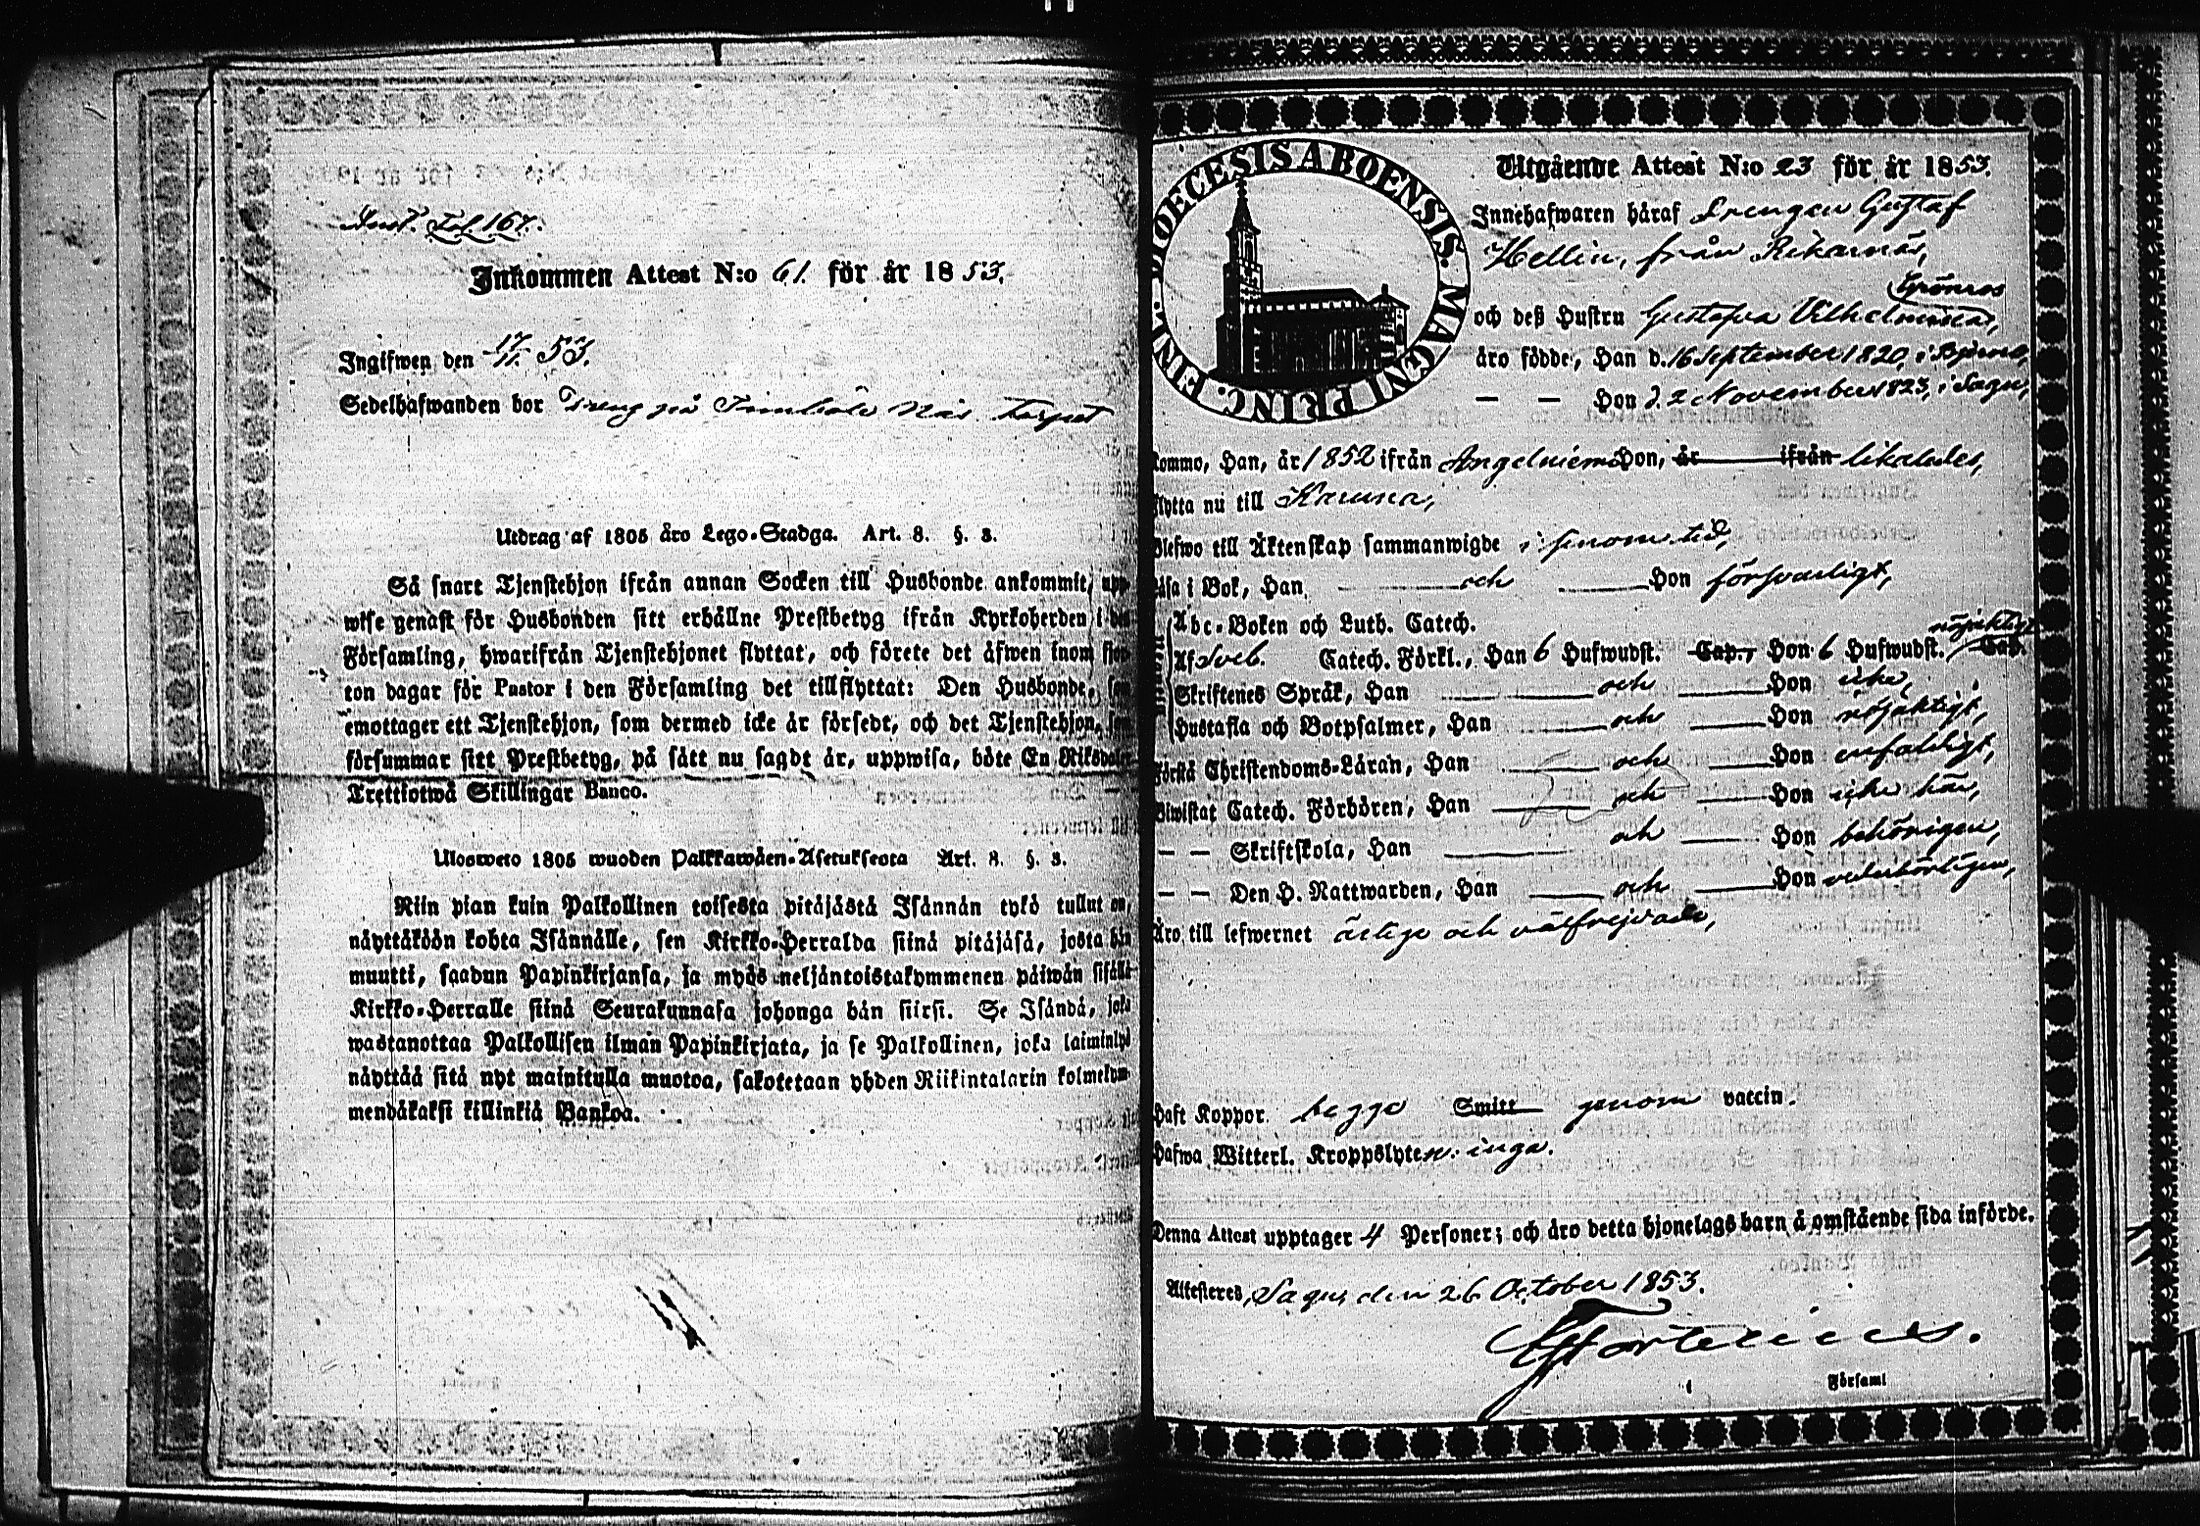 Inst. Fol. 167.
Inkommen Attest N:o 61. för år 1853.
Ingifwen den 17/11. 53.
Sedelhafwanden bor Dreng på Näs Torpet
Utdrag af 1805 års Lego-Stadga. Art. 8. §. 3.
Så snart Tjenstehjon ifrån annan Socken till Husbonde ankommit, upp-
wise genast för Husbonden sitt erhållne Prestbetyg ifrån Kyrkoherden i den
Församling, hwarifrån Tjenstehjonet flyttat, och förete det äfwen inom fjor-
ton dagar för Pastor i den Församling det tillflyttat: Den Husbonde, som
emottager ett Tjenstehjon, som dermed icke är försedt, och det Tjenstehjon, som
försummar sitt Prestbetyg, på sätt nu sagdt är, uppwisa, böte En Riksdaler
Trettiotwå Skillingar Banco.
Ulosweto 1805 wuoden Palkkawäen-Asetuksesta Art. 8. §. 3.
Niin pian kuin Palkollinen toisesta pitäjästä Isännän tykö tullut on,
näyttäköön kohta Isännälle, sen Kirkko-Herralda siinä pitäjäsä, josta hän
muutti, saadun Papinkirjansa, ja myös neljäntoistakymmenen päiwän sisällä
Kirkko-Herralle siinä Seurakunnasa johonga hän siirsi. Se Isändä, joka
wastanottaa Palkollisen ilman Papinkirjata, ja se Palkollinen, joka laiminlyö
näyttää sitä nyt mainitulla muotoa, sakotetaan yhden Riikintalarin kolmekym-
mendäkaksi killinkiä Bankoa.
DIOECESIS ABOENSIS. MAGNI PRINC. FINL.
Utgående Attest N:o 23 för år 1853.
Innehafwaren häraf Drengen Gustaf
Hellin, från Rekarnäs,
Grönros
och deß Hustru Gustafva Vilhelmina,
äro födde, Han d. 16 September 1820, i Bjerno,
— — Hon d. 2 November 1823, i Sagu,
Kommo, Han, år 1852 ifrån Angelniemi Hon, år ifrån likaledes,
Flytta nu till Karuna,
Blefwo till Äktenskap sammanwigde i sinom tid,
Läsa i Bok, Han och Hon försvarligt,
Abc-Boken och Luth. Catech.
nöjaktigt
Af Sveb. Catech. Förkl., Han 6 Hufwudst. Cap., Hon 6 Hufwudst. Cap.
Skriftenes Språk, Han och Hon icke,
Hustafla och Botpsalmer, Han och Hon nöjaktigt,
Förstå Christendoms-Läran, Han och Hon enfaldigt,
Biwistat Catech. Förhören, Han och Hon icke här,
— — Skriftskola, Han och Hon behörigen,
— — Den H. Nattwarden, Han och Hon vederbörligen,
Äro till lefwernet ärlige och välfrejdade,
Haft Koppor begge Smitt genom vaccin.
Hafwa Witterl. Kroppslyten: inga.
Denna Attest upptager 4 Personer; och äro detta hjonelags barn å omstående sida införde.
Attesteres, Sagu, den 26 October 1853.
Församl